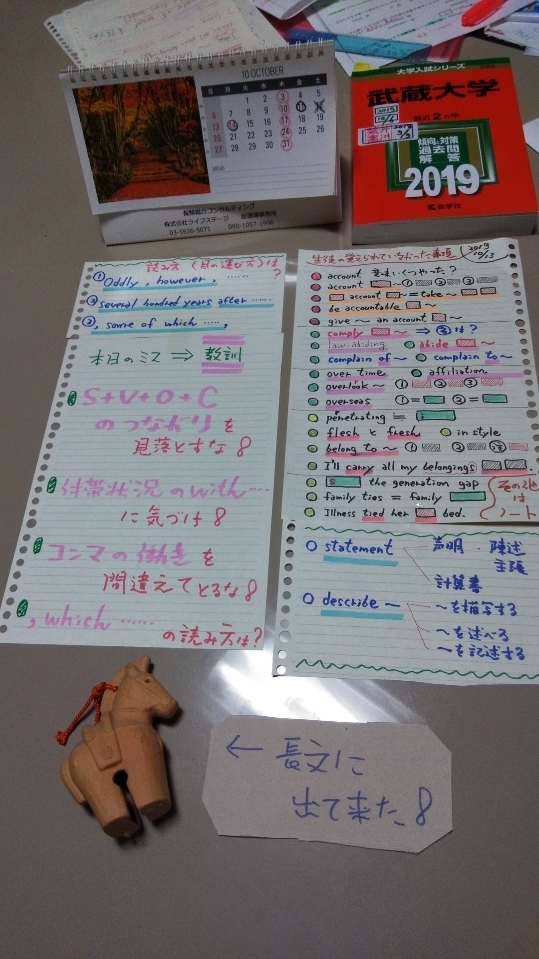 10 OCTOBER
日 月 火 水 木 金 土
1 2 3 4 5
6 7 8 9 10 11 12
13 14 15 16 17 18 19
20 21 22 23 24 25 26
27 28 29 30 31
MEMO
株式会社ライフステージ
03-3926-5071 090-1057-1996
大学入試シリーズ
武蔵大学
最近2カ年
傾向と対策
過去問
解答
2019
教学社
読み方(目の運び方)は?
① Oddly, however, ……
② several hundred years after ……
③, some of which ……,
本日のミス ⇒ 教訓
S+V+O+C
のつながりを
見落とすな!
付帯状況のwith……
に気づけ!
コンマの働きを
間違えてとるな!
, which ……
の読み方は?
生徒の覚えられていなかった事項 2019 10/13
account 意味いくつやった?
account ① ② ③
account ~ = take ~
be accountable ~
give ~ an account ~
comply ~ ⇒ ③は?
law-abiding abide ~
complain of ~ complain to ~
over time affiliation
overlook ~ ① ② ③
overseas = =
penetrating ≒
flesh と fresh in style
belong to ~ ① ② ③ 注
I'll carry all my belongings
S the generation gap
family ties = family
Illness tied her bed.
その他はノート
statement 声明・陳述
主張
計算書
describe ~ ~を描写する
~を述べる
~を記述する
← 長文に
出て来た!